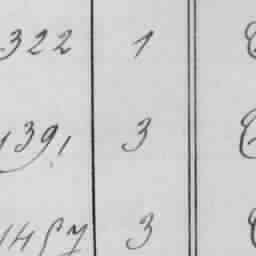 322 1
1391 3
1457 3